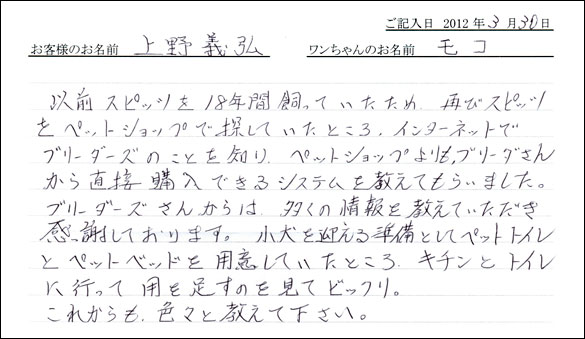 ご記入日 2012年3月30日
お客様のお名前 上野義弘 ワンちゃんのお名前 モコ
以前スピッツを18年間飼っていたため、再びスピッツ
をペットショップで探していたところ、インターネットで
ブリーダーズのことを知り、ペットショップよりも、ブリーダさん
から直接購入できるシステムを教えてもらいました。
ブリーダーズさんからは、多くの情報を教えていただき
感謝しております。小犬を迎える準備としてペットトイレ
とペットベッドを用意していたところ、キチンとトイレ
に行って用を足すのを見てビックリ。
これからも、色々と教えて下さい。